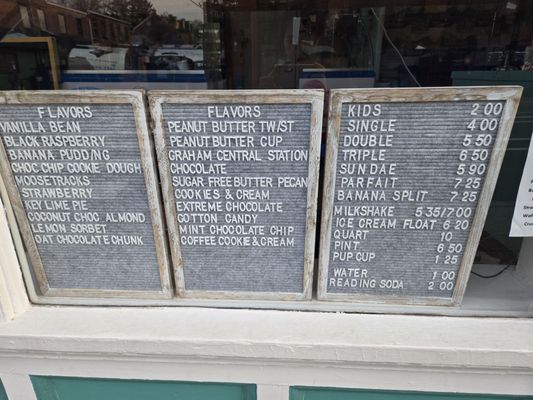 FLAVORS
VANILLA BEAN
BLACK RASPBERRY
BANANA PUDDING
CHOC CHIP COOKIE DOUGH
MOOSETRACKS
STRAWBERRY
KEY LIME PIE
COCONUT CHOC ALMOND
LEMON SORBET
OAT CHOCOLATE CHUNK
FLAVORS
PEANUT BUTTER TW/ST
PEANUT BUTTER CUP
GRAHAM CENTRAL STATION
CHOCOLATE
SUGAR FREE BUTTER PECAN
COOKIES & CREAM
EXTREME CHOCOLATE
COTTON CANDY
MINT CHOCOLATE CHIP
COFFEE COOKIE & CREAM
KIDS 2 00
SINGLE 4 00
DOUBLE 5 50
TRIPLE 6 50
SUNDAE 5 90
PARFAIT 7 25
BANANA SPLIT 7 25
MILKSHAKE 5 35/7 00
ICE CREAM FLOAT 6 20
QUART 10
PINT 6 50
PUP CUP 1 25
WATER 1 00
READING SODA 2 00